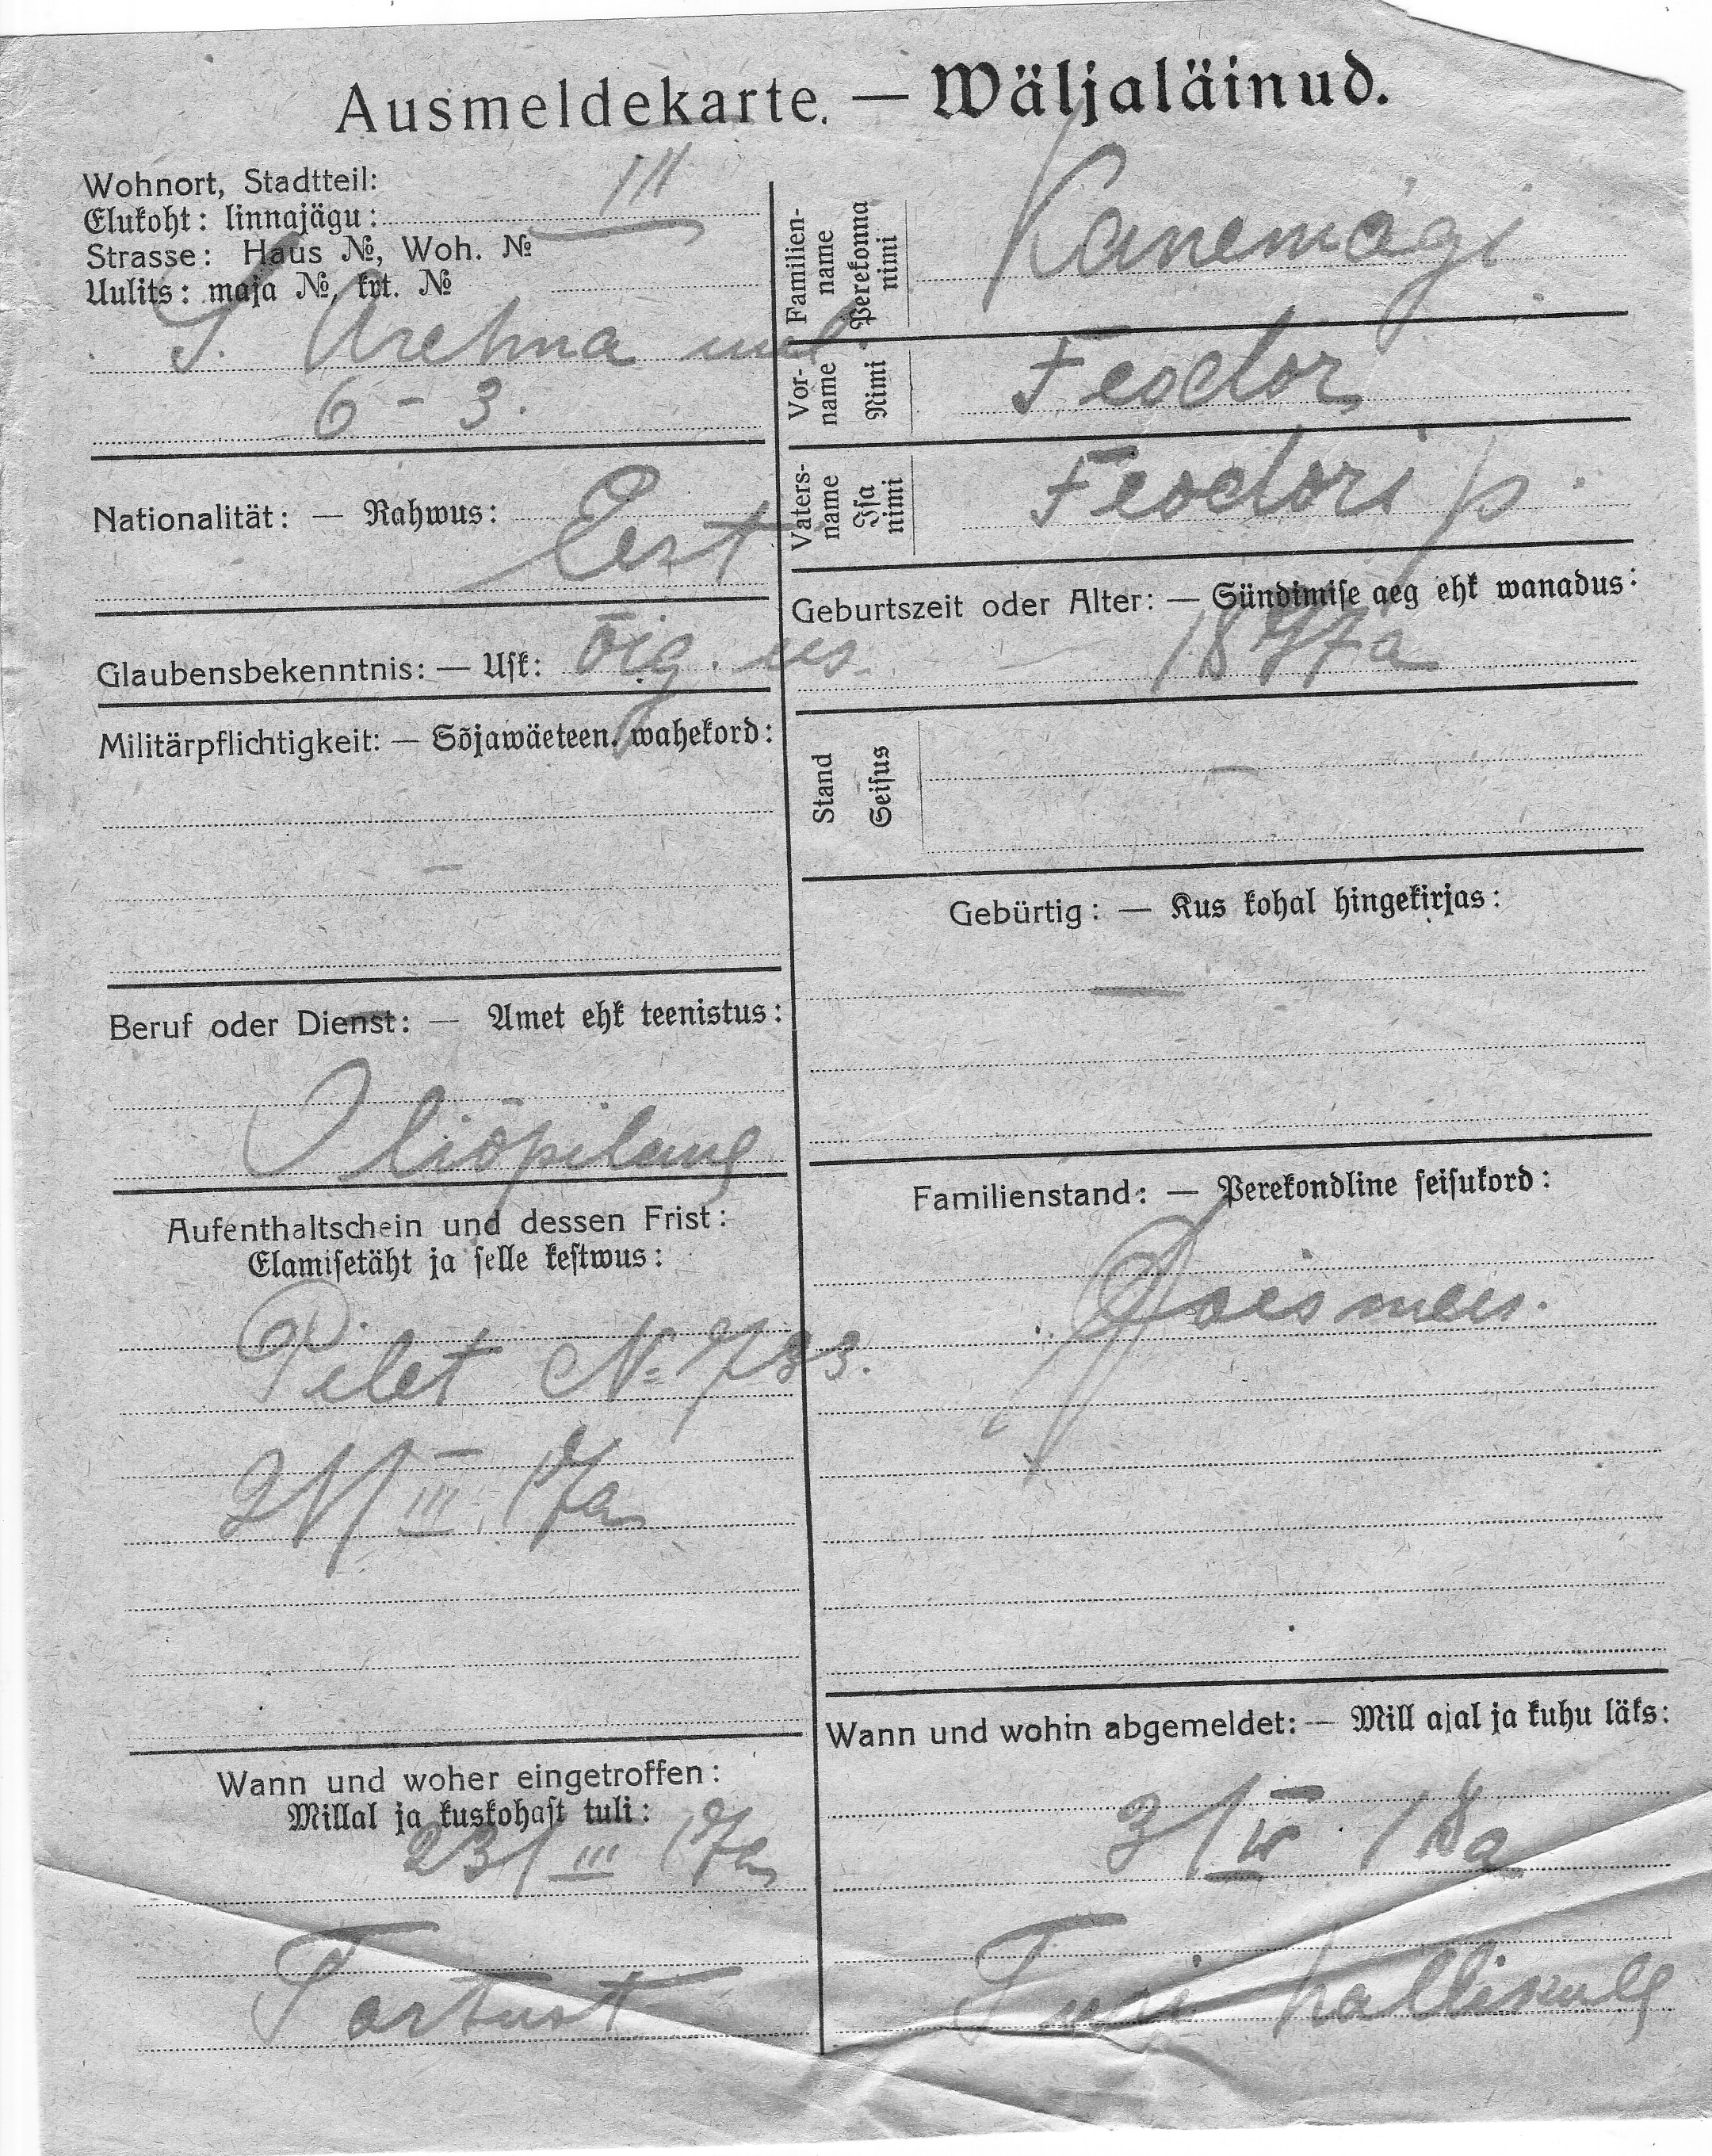 Ausmeldekarte. — Wäljaläinud.
Wohnort, Stadtteil:
Elukoht: linnajägu: III
Strasse: Haus №, Woh. №
Uulits: maja №, krt. №
6 - 3.
Nationalität: — Rahwus:
Eest
Glaubensbekenntnis: — Usk: õig. us.
Militärpflichtigkeit: — Sõjawäeteen. wahekord:
—
Beruf oder Dienst: — Amet ehk teenistus:
Üliõpilane
Aufenthaltschein und dessen Frist:
Elamisetäht ja selle kestwus:
Pilet № 733.
21/III 17a
Wann und woher eingetroffen:
Millal ja kuskohast tuli:
23/III 17a
Tartust
Familien-name Perekonna nimi Kanemägi
Vor-name Nimi Feodor
Vaters-name Isa nimi Feodori p.
Geburtszeit oder Alter: — Sündimise aeg ehk wanadus:
Stand Seisus —
Gebürtig: — Kus kohal hingekirjas:
—
Familienstand: — Perekondline seisukord:
Poismees.
Wann und wohin abgemeldet: — Mill ajal ja kuhu läks:
3/IV 18a